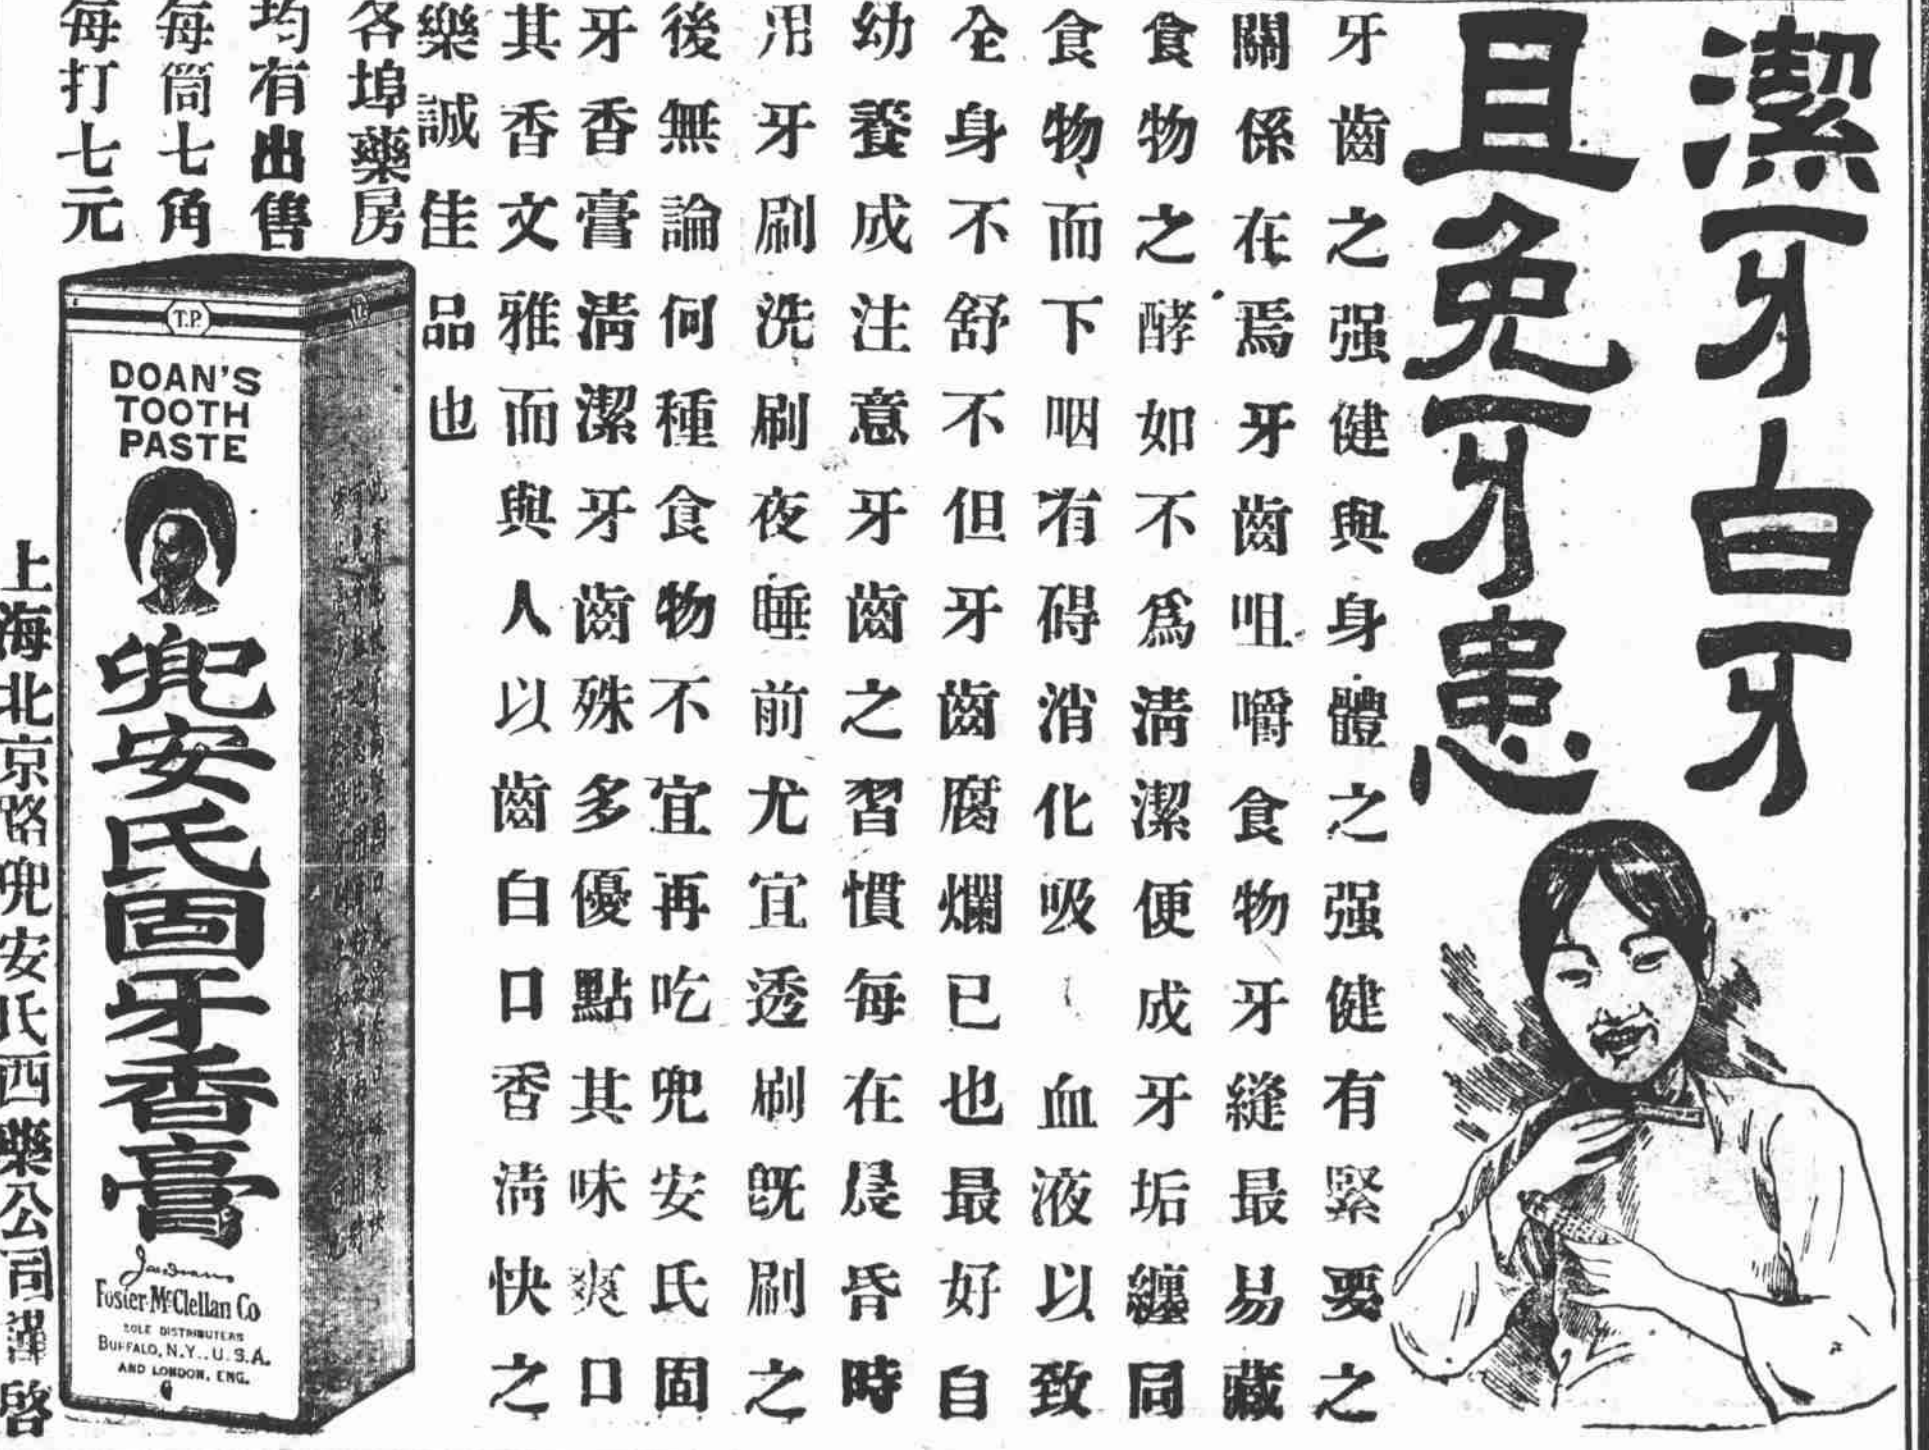 潔牙白牙
且免牙患
牙齒之强健與身體之强健有緊要之
關係在焉牙齒咀嚼食物牙縫最易藏
食物之酵如不爲淸潔便成牙垢纏同
食物而下咽有碍消化吸血液以致
全身不舒不但牙齒腐爛已也最好自
幼養成注意牙齒之習慣每在晨昏時
用牙刷洗刷夜睡前尤宜透刷旣刷之
後無論何種食物不宜再吃兜安氏固
牙香膏淸潔牙齒殊多優點其味爽口
其香文雅而與人以齒白口香淸快之
樂誠佳品也
各埠藥房
均有出售
每筒七角
每打七元
T.P.
DOAN'S
TOOTH
PASTE
兜安氏固牙香膏
Foster-McClellan Co
SOLE DISTRIBUTERS
BUFFALO, N.Y., U.S.A.
AND LONDON, ENG.
上海北京路兜安氏西藥公司謹啓